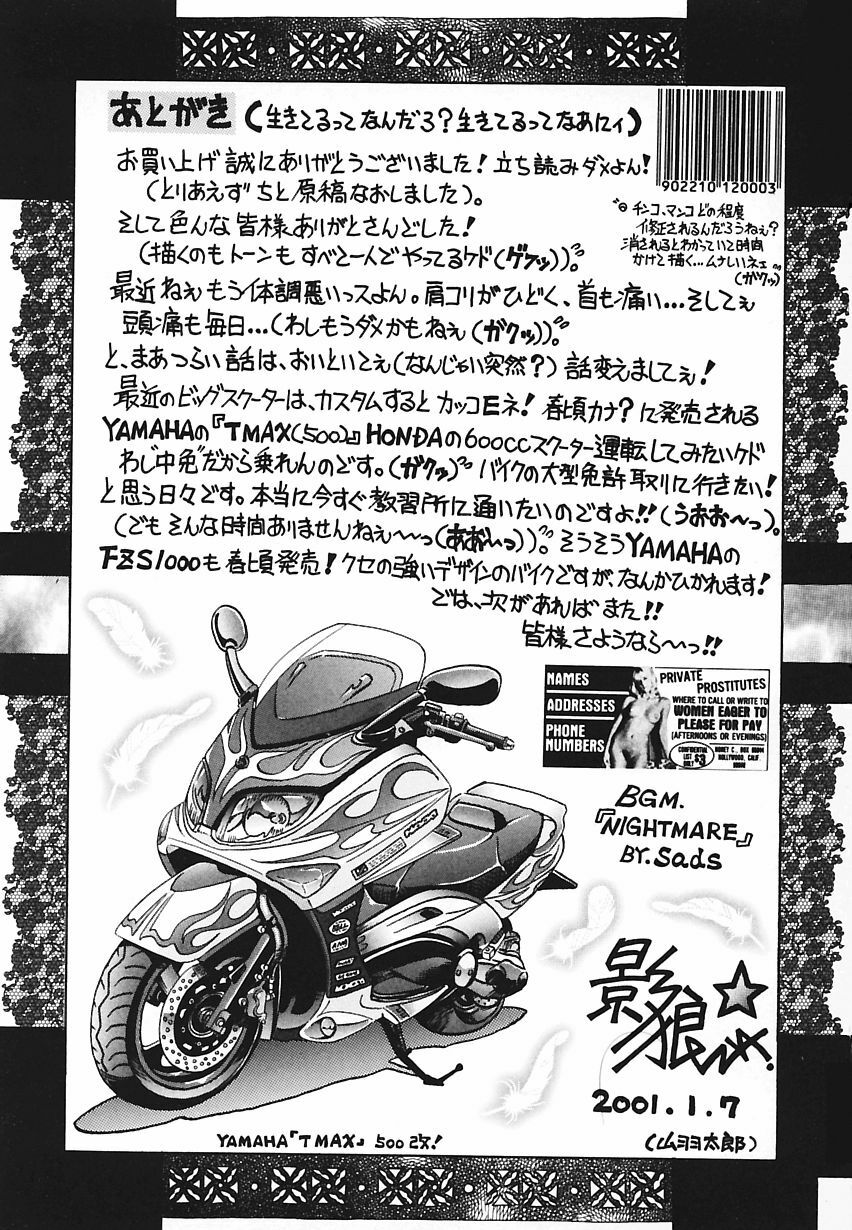 あとがき(生きてるってなんだろ?生きてるってなあにィ)
お買い上げ誠にありがとうございました!立ち読みダメよん!
(とりあえずちと原稿なおしました)。
そして色んな皆様ありがとさんどした!
(描くのもトーンもすべて一人でやってるケド(ゲフッ))。
902210 120003
チンコ、マンコどの程度
修正されるんだろうねぇ?
消されるとわかっていて時間
かけて描く…ムナしいネェ
(ガクッ)
最近ねぇもう体調悪いっスよん。肩コリがひどく、首も痛い…そしてぇ
頭痛も毎日…(わしもうダメかもねぇ(ガクッ))。
と、まあつらい話は、おいといてぇ(なんじゃい突然?)話変えましてぇ!
最近のビッグスクーターは、カスタムするとカッコEネ!春頃カナ?に発売される
YAMAHAの『TMAX(500)』HONDAの600CCスクーター運転してみたいケド
わし中免だから乗れんのです。(ガクッ)バイクの大型免許取りに行きたい!
と思う日々です。本当に今すぐ教習所に通いたいのですよ!!(うおお〜っ)。
(でもそんな時間ありませんねぇ〜〜っ(あおぉ〜っ))。そうそうYAMAHAの
FZS1000も春頃発売!クセの強いデザインのバイクですが、なんかひかれます!
では、次があればまた!!
皆様さようなら〜っ!!
NAMES
ADDRESSES
PHONE
NUMBERS
PRIVATE
PROSTITUTES
WHERE TO CALL OR WRITE TO
WOMEN EAGER TO
PLEASE FOR PAY
(AFTERNOONS OR EVENINGS)
CONFIDENTIAL
LIST $3
ONLY
HONEY C., BOX
HOLLYWOOD, CALIF.
BGM.
『NIGHTMARE』
BY.sads
影狼
2001.1.7
YAMAHA『TMAX』500改!